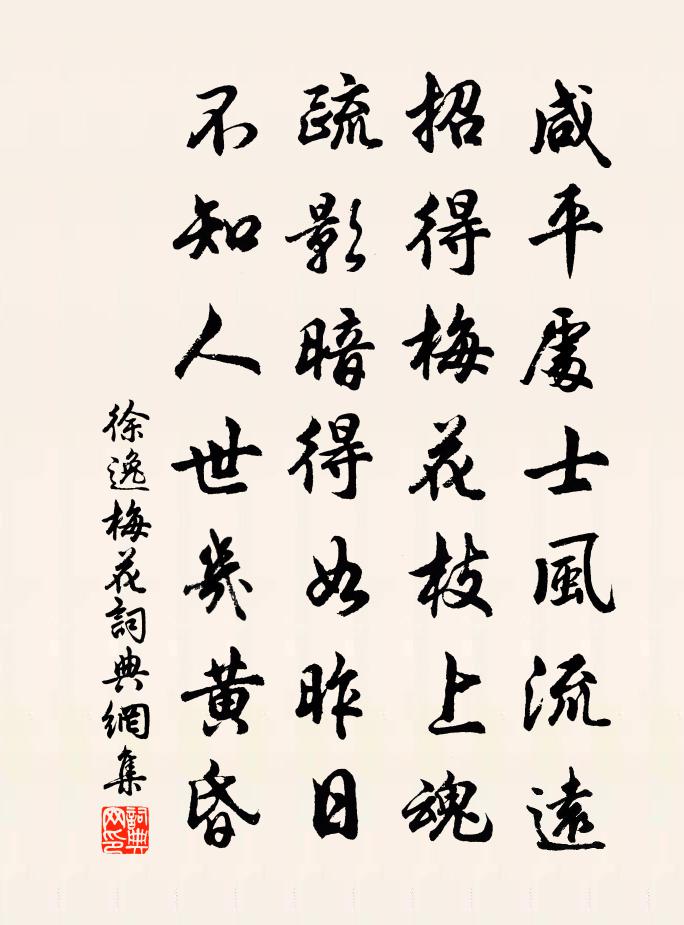 咸平處士風流遠
招得梅花枝上魂
疏影暗得如昨日
不知人世幾黃昏
徐逸梅花詞典網集
詞典網印